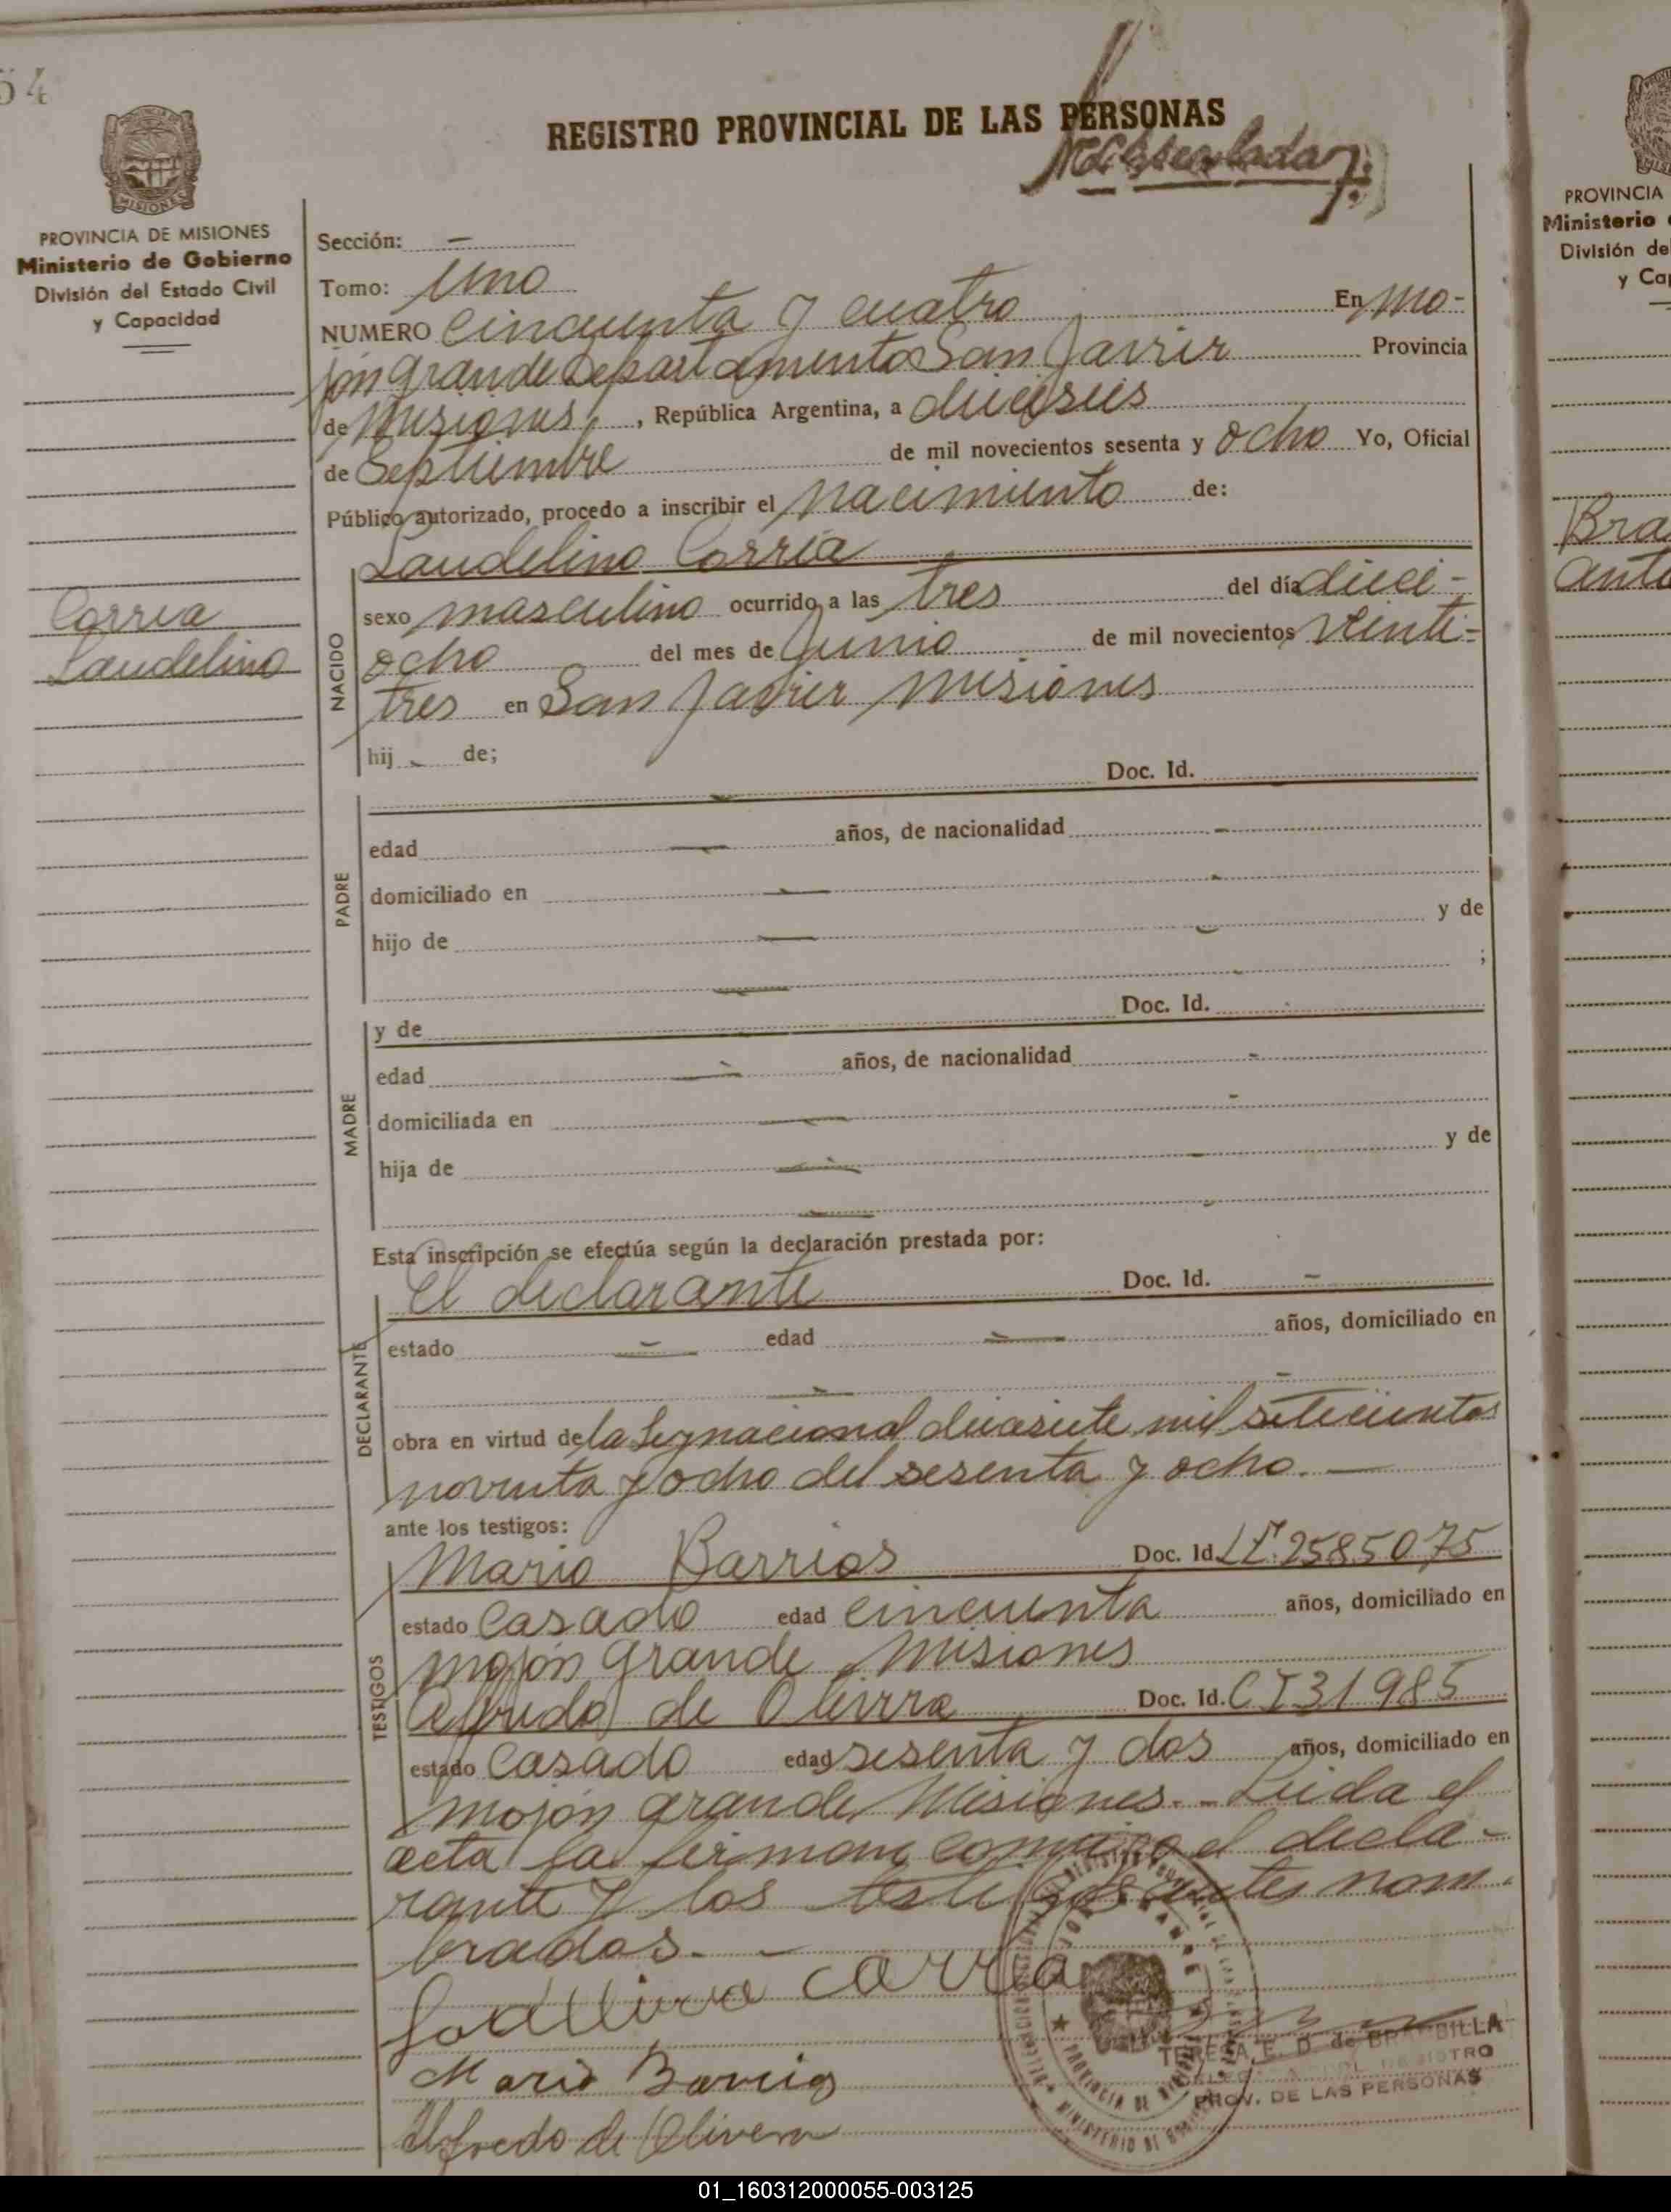 54
REGISTRO PROVINCIAL DE LAS PERSONAS
MISIONES
PROVINCIA DE MISIONES
Ministerio de Gobierno
División del Estado Civil
y Capacidad
Sección: -
Tomo: Uno
NUMERO Cincuenta y cuatro En Mo-
jón grande Departamento San Javier Provincia
de Misiones, República Argentina, a dieciseis
de Septiembre de mil novecientos sesenta y ocho Yo, Oficial
Público autorizado, procedo a inscribir el nacimiento de:
Laudelino Correa
Correa
Laudelino
NACIDO
sexo masculino ocurrido a las tres del día dieci-
ocho del mes de Junio de mil novecientos veinti-
tres en San Javier Misiones
hij - de;
Doc. Id.
PADRE
edad - años, de nacionalidad -
domiciliado en -
hijo de - y de
- ;
MADRE
y de Doc. Id.
edad - años, de nacionalidad -
domiciliada en -
hija de - y de
-
Esta inscripción se efectúa según la declaración prestada por:
DECLARANTE
El declarante Doc. Id. -
estado - edad - años, domiciliado en
-
obra en virtud de la Ley nacional diecisiete mil setecientos
noventa y ocho del sesenta y ocho. -
ante los testigos:
TESTIGOS
Mario Barrios Doc. Id. LE. 2585075
estado Casado edad cincuenta años, domiciliado en
Mojón grande Misiones
Alfredo de Olivera Doc. Id. CI 31985
estado Casado edad sesenta y dos años, domiciliado en
Mojón grande Misiones. - Leida el
acta la firman conmigo el decla-
rante y los testigos antes nom-
brados. -
Correa
Mario Barrios
Alfredo de Olivera
TERESA E. D. de BRAMBILLA
PROV. DE LAS PERSONAS
PROVINCIA DE MISIONES
PROVINCIA
Ministerio
División de
y Ca
Bra
Anto
01_160312000055-003125